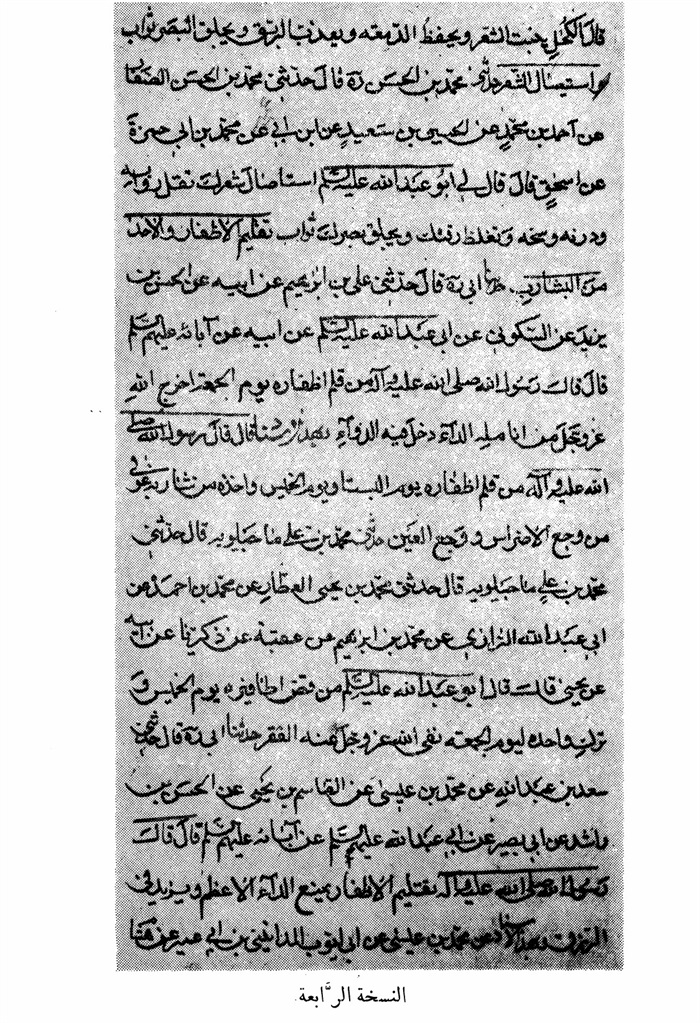 قال الكحل ينبت الشعر ويحفظ الدمعه ويعذب الريق ويجلو البصر ثواب
واستيصال الشعر حدثني محمد بن الحسن ره قال حدثني محمد بن الحسن الصفار
عن احمد بن محمد عن الحسين بن سعيد عن ابن ابي عمير عن محمد بن ابي حمزة
عن اسحق قال قال لي ابو عبد الله عليه السلم استاصل شعرك تقل دوابه
ودرنه ووسخه وتغلظ رقبتك ويجلو بصرك ثواب تقليم الاظفار والاخذ
من الشارب ابي ره قال حدثني علي بن ابرهيم عن ابيه عن الحسين بن
يزيد عن السكوني عن ابي عبد الله عليه السلم عن ابيه عن آبائه عليهم السلم
قال قال رسول الله صلى الله عليه وآله من قلم اظفاره يوم الجمعة اخرج الله
عز وجل من انامله الداء وادخل فيه الدواء بهذا الاسناد قال قال رسول الله صلى
الله عليه وآله من قلم اظفاره يوم السبت ويوم الخميس واخذ من شاربه عوفي
من وجع الاضراس ووجع العين حدثني محمد بن علي ماجيلويه قال حدثني
محمد بن علي ماجيلويه قال حدثني محمد بن يحيى العطار عن محمد بن احمد عن
ابي عبد الله الرازي عن محمد بن ابرهيم عن عقبة عن زكريا عن ابيه
عن يحيى قال قال ابو عبد الله عليه السلم من قص اظافيره يوم الخميس و
ترك واحده ليوم الجمعه نفى الله عز وجل عنه الفقر حدثنا ابي ره قال حدثني
سعد بن عبد الله عن محمد بن عيسى عن القاسم بن يحيى عن الحسن بن
راشد عن ابي بصير عن ابي عبد الله عليه السلم عن آبائه عليهم السلم قال قال
رسول الله صلى الله عليه وآله تقليم الاظفار يمنع الداء الاعظم ويزيد في
الرزق وبهذا الاسناد عن محمد بن عيسى عن ابي ايوب المدائني بن ابي عمير عن هشا
النسخة الرَّابعة